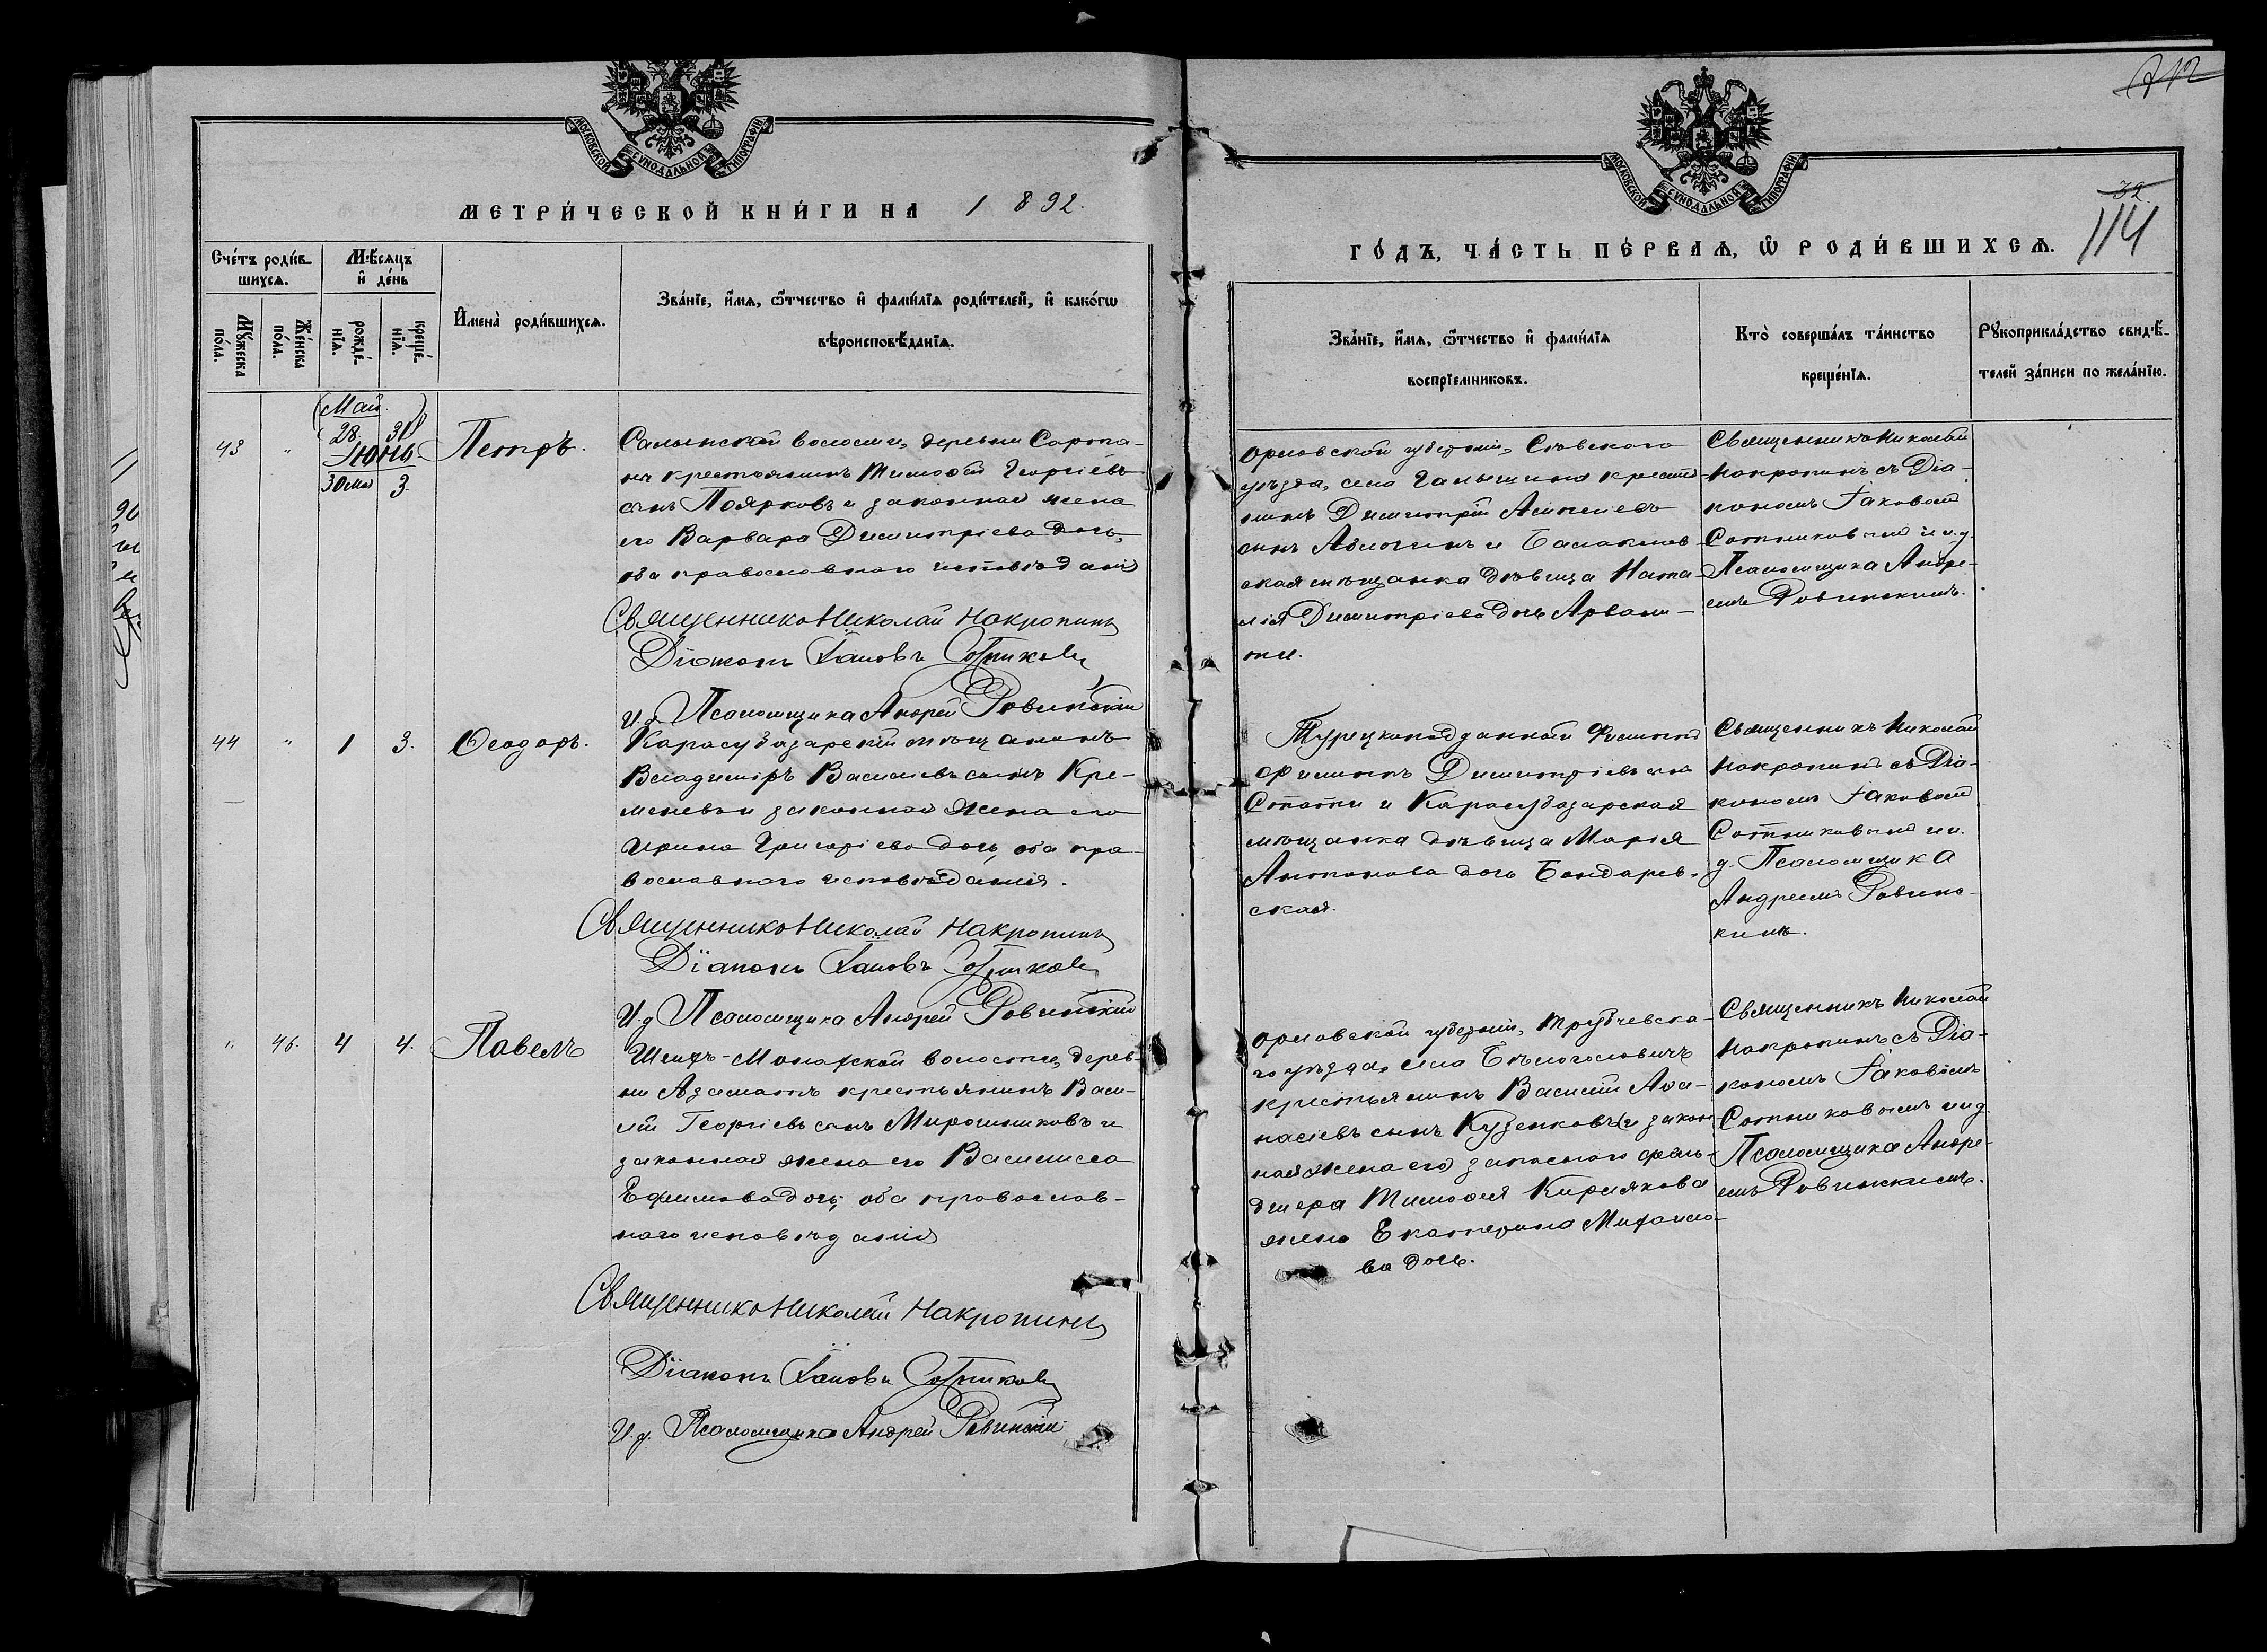 МОСКОВСКОЙ СѴНОДАЛЬНОЙ ТИПОГРАФІИ
МЕТРИ́ЧЕСКОЙ КНИ́ГИ НА 1892.
Сче́тъ роди́вшихсѧ.
Мѣ́сѧцъ и҆ де́нь
Мꙋ́жеска по́ла.
Же́нска по́ла.
рожде́нїѧ.
креще́нїѧ.
И҆мена̀ роди́вшихсѧ.
Зва́нїе, и҆́мѧ, ѻ҆́тчество и҆ фами́лїѧ роди́телей, и҆ како́гѡ
вѣроисповѣ́данїѧ.
(Май.)
43 " 28. 31 Петръ.
Іюнь
30 мая 3.
Салынской волости, деревни Сарпа-
на крестьянинъ Тимофей Георгіевъ
сынъ Поярковъ и законная жена
его Варвара Димитріева дочь,
оба православнаго исповѣданія
Священникъ Николай Накропинъ
Діаконъ Іаковъ Сотниковъ
И. д. Псаломщика Андрей Ровинскій
44 " 1 3. Ѳеодоръ.
Карасубазарскій мѣщанинъ
Владиміръ Василіевъ сынъ Кре-
меневъ и законная жена его
Ирина Григоріева дочь, оба пра-
вославнаго исповѣданія.
Священникъ Николай Накропинъ
Діаконъ Іаковъ Сотниковъ
И. д. Псаломщика Андрей Ровинскій
". 46. 4 4. Павелъ
Шейхъ-Монахской волости, дерев-
ни Азаматъ крестьянинъ Васи-
лій Георгіевъ сынъ Мирошниковъ и
законная жена его Василисса
Ефимова дочь, оба православ-
наго исповѣданія
Священникъ Николай Накропинъ
Діаконъ Іаковъ Сотниковъ
И. д. Псаломщика Андрей Ровинскій
МОСКОВСКОЙ СѴНОДАЛЬНОЙ ТИПОГРАФІИ
32
114
ГО́ДЪ, ЧА́СТЬ ПЕ́РВАѦ, Ѡ҆ РОДИ́ВШИХСѦ.
Зва́нїе, и҆́мѧ, ѻ҆́тчество и҆ фами́лїѧ
воспрїе́мниковъ.
Кто̀ соверша́лъ та́инство
креще́нїѧ.
Рꙋкоприкла́дство свидѣ́-
телей за́писи по жела́нїю.
Орловской губерніи, Сѣвскаго
уѣзда, села Галышина крестья
нинъ Димитрій Алексіевъ
сынъ Аблогинъ и Балаклав-
ская мѣщанка дѣвица Ната-
лія Димитріева дочь Арвани-
ти.
Священникъ Николай
Накропинъ съ Діа-
кономъ Іаковомъ
Сотниковымъ и и. д.
Псаломщика Андре-
емъ Ровинскимъ.
Турецкоподданный
Димитріевъ сынъ
Спати и Карасубазарская
мѣщанка дѣвица Марія
Антонова дочь Бондарев-
ская.
Священникъ Николай
Накропинъ съ Діа-
кономъ Іаковомъ
Сотниковымъ и и.
д. Псаломщика
Андреемъ Ровинс-
кимъ.
Орловской губерніи, Трубчевска-
го уѣзда, села Бѣлоголовичъ
крестьянинъ Василій Аѳа-
насіевъ сынъ Кузенковъ (и закон
ная жена его) запаснаго фель-
дшера Тимофея Кирьякова
жена Екатерина Михайло-
ва дочь.
Священникъ Николай
Накропинъ съ Діа-
кономъ Іаковомъ
Сотниковымъ и и. д.
Псаломщика Андре-
емъ Ровинскимъ.